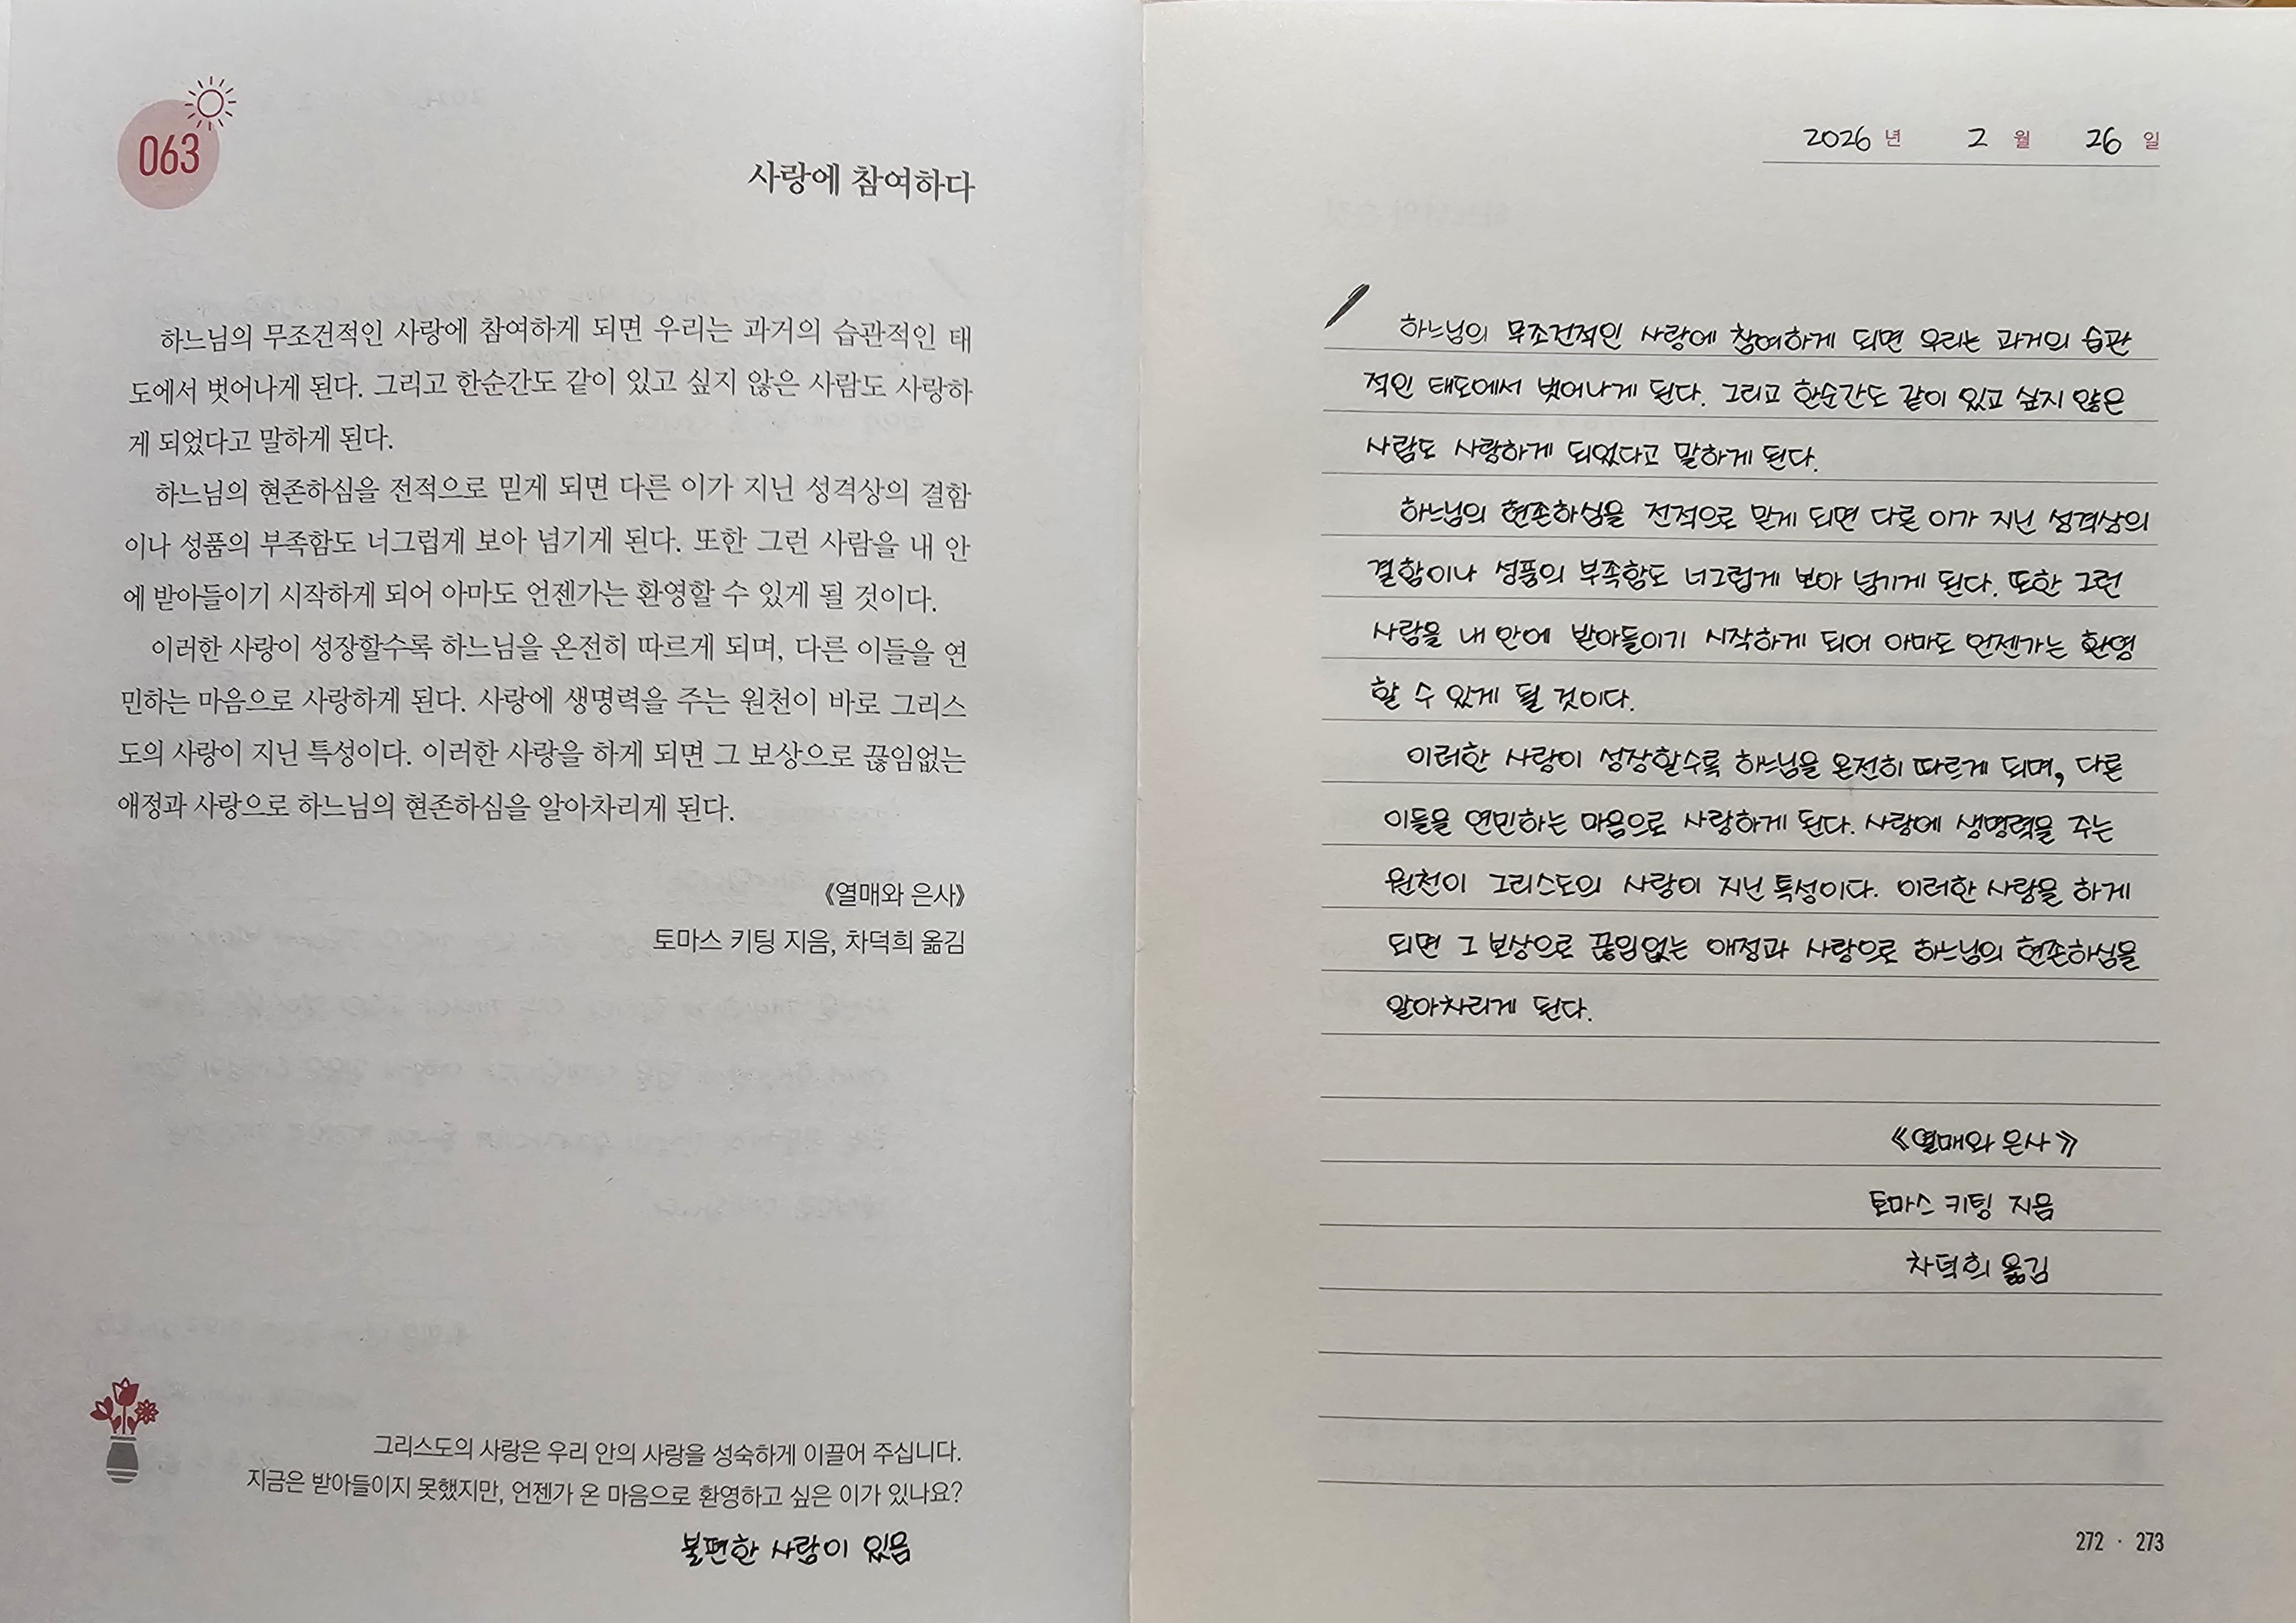 063
사랑에 참여하다
하느님의 무조건적인 사랑에 참여하게 되면 우리는 과거의 습관적인 태
도에서 벗어나게 된다. 그리고 한순간도 같이 있고 싶지 않은 사람도 사랑하
게 되었다고 말하게 된다.
하느님의 현존하심을 전적으로 믿게 되면 다른 이가 지닌 성격상의 결함
이나 성품의 부족함도 너그럽게 보아 넘기게 된다. 또한 그런 사람을 내 안
에 받아들이기 시작하게 되어 아마도 언젠가는 환영할 수 있게 될 것이다.
이러한 사랑이 성장할수록 하느님을 온전히 따르게 되며, 다른 이들을 연
민하는 마음으로 사랑하게 된다. 사랑에 생명력을 주는 원천이 바로 그리스
도의 사랑이 지닌 특성이다. 이러한 사랑을 하게 되면 그 보상으로 끊임없는
애정과 사랑으로 하느님의 현존하심을 알아차리게 된다.
《열매와 은사》
토마스 키팅 지음, 차덕희 옮김
그리스도의 사랑은 우리 안의 사랑을 성숙하게 이끌어 주십니다.
지금은 받아들이지 못했지만, 언젠가 온 마음으로 환영하고 싶은 이가 있나요?
불편한 사람이 있음
2026 년 2 월 26 일
하느님의 무조건적인 사랑에 참여하게 되면 우리는 과거의 습관
적인 태도에서 벗어나게 된다. 그리고 한순간도 같이 있고 싶지 않은
사람도 사랑하게 되었다고 말하게 된다.
하느님의 현존하심을 전적으로 믿게 되면 다른 이가 지닌 성격상의
결함이나 성품의 부족함도 너그럽게 보아 넘기게 된다. 또한 그런
사람을 내 안에 받아들이기 시작하게 되어 아마도 언젠가는 환영
할 수 있게 될 것이다.
이러한 사랑이 성장할수록 하느님을 온전히 따르게 되며, 다른
이들을 연민하는 마음으로 사랑하게 된다. 사랑에 생명력을 주는
원천이 그리스도의 사랑이 지닌 특성이다. 이러한 사랑을 하게
되면 그 보상으로 끊임없는 애정과 사랑으로 하느님의 현존하심을
알아차리게 된다.
《열매와 은사》
토마스 키팅 지음
차덕희 옮김
272 · 273